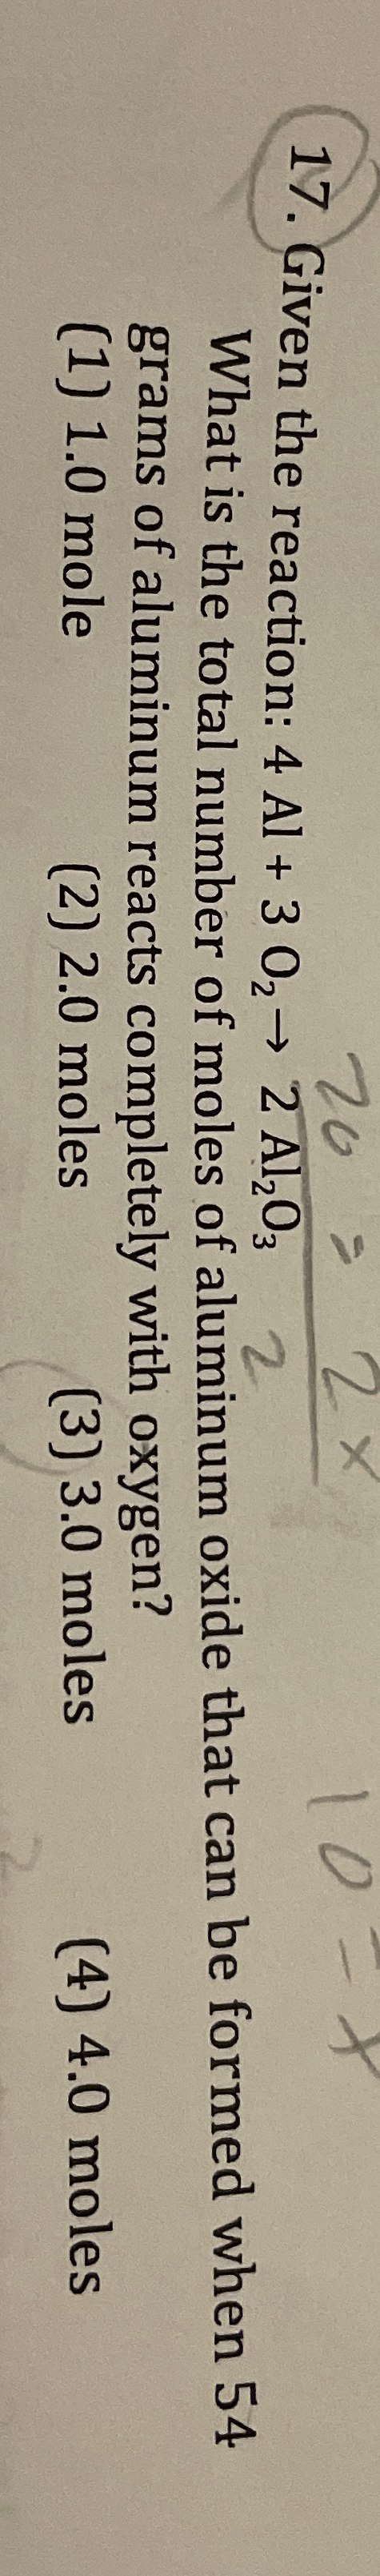 20 = 2x
10 = x
2
17. Given the reaction: 4 Al + 3 O₂ → 2 Al₂O₃
What is the total number of moles of aluminum oxide that can be formed when 54
grams of aluminum reacts completely with oxygen?
(1) 1.0 mole (2) 2.0 moles (3) 3.0 moles (4) 4.0 moles